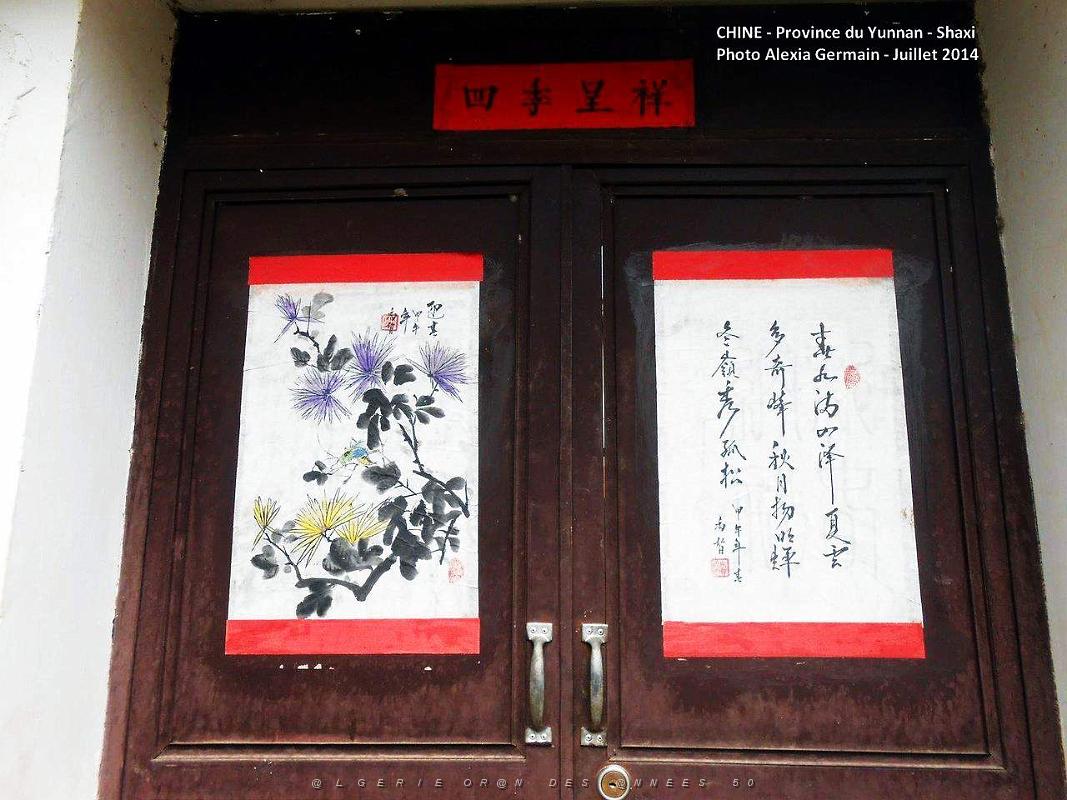 CHINE - Province du Yunnan - Shaxi
Photo Alexia Germain - Juillet 2014
四季呈祥
迎春
甲午
年
春水满四泽夏雲
多奇峰秋月扬明輝
冬嶺秀孤松
甲午年春
@LGERIE OR@N DES @NNEES 50